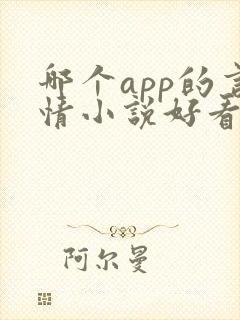 哪个app的言
情小说好看
阿尔曼